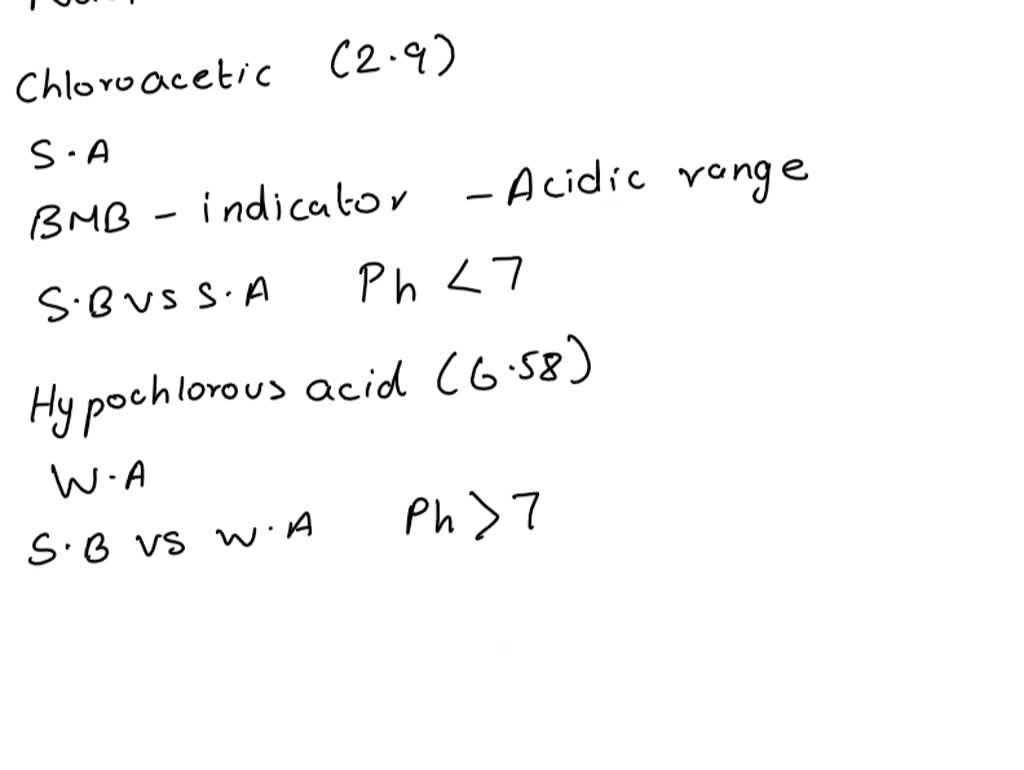 Chloroacetic (2.9)
S.A
BMB - indicator - Acidic range
S.B vs S.A Ph < 7
Hypochlorous acid (6.58)
W.A
S.B vs W.A Ph > 7